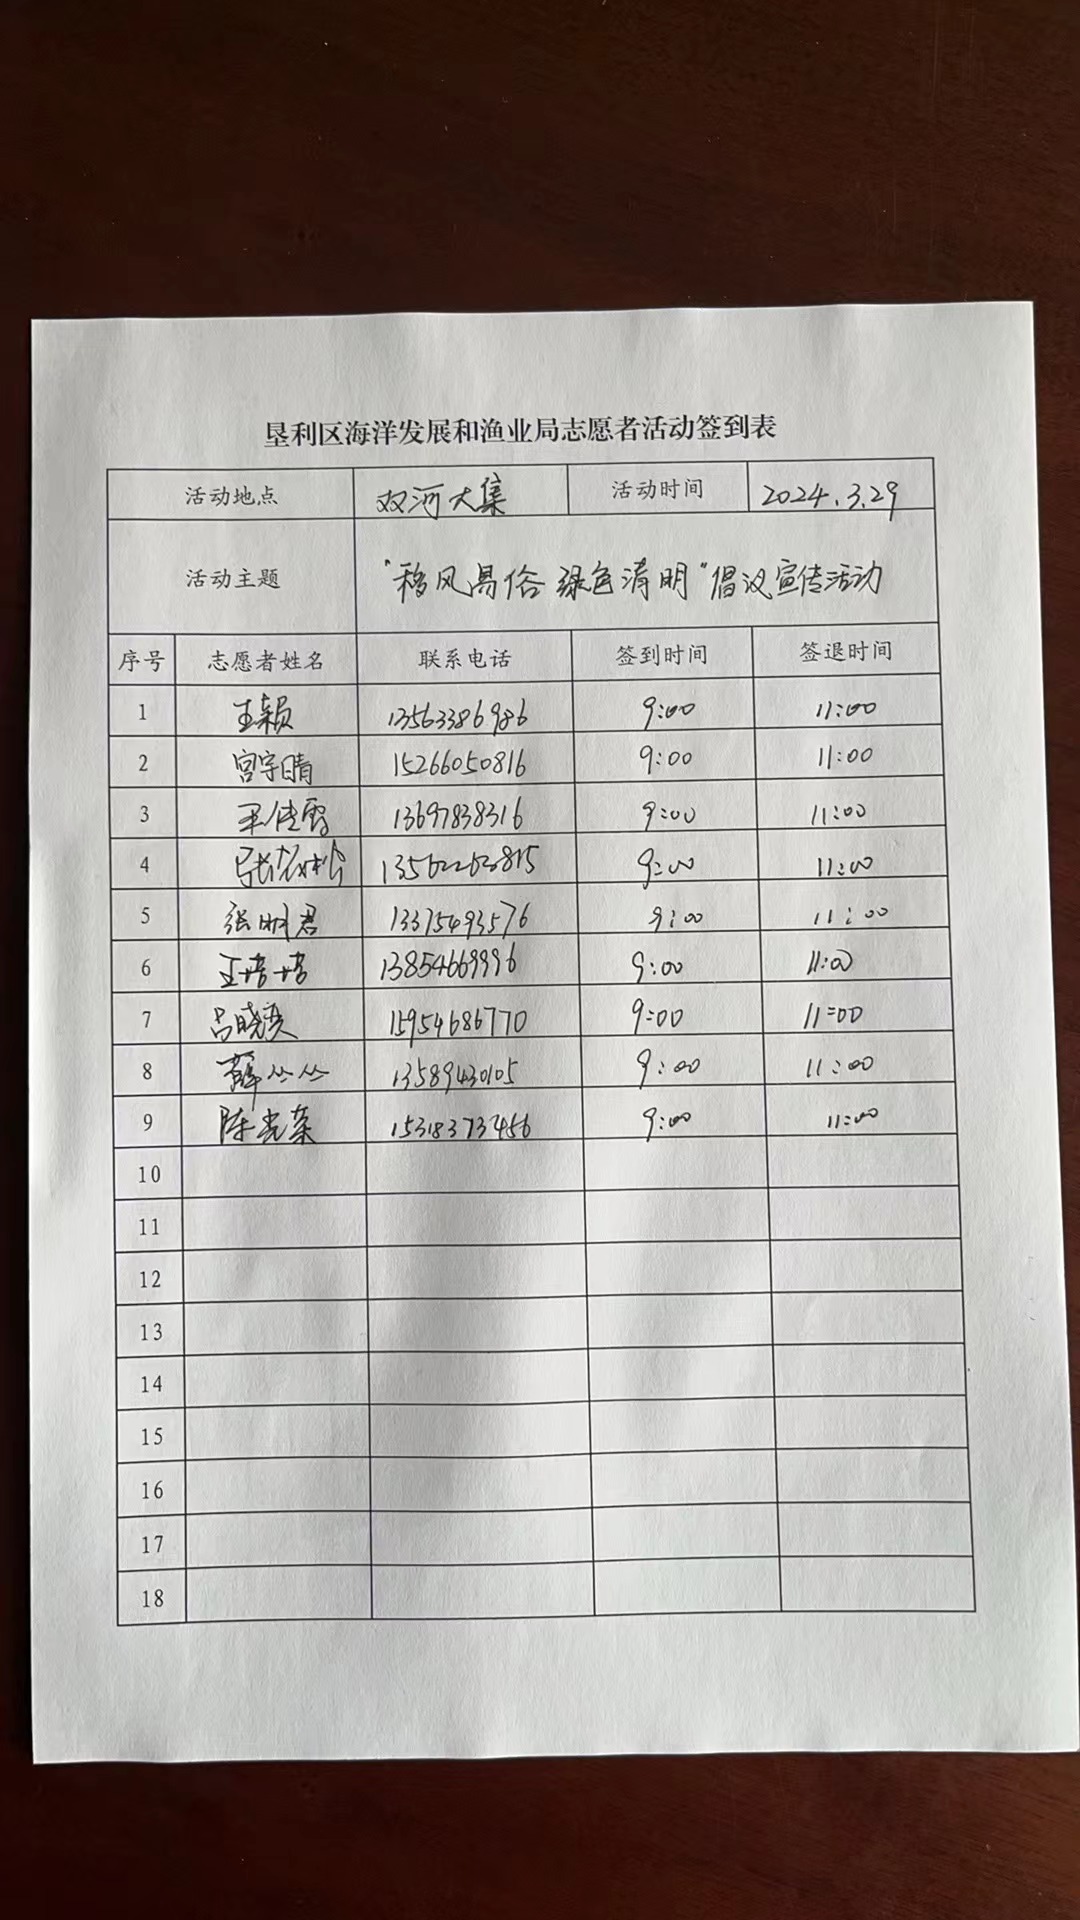 垦利区海洋发展和渔业局志愿者活动签到表
活动地点 双河大集 活动时间 2024.3.29
活动主题 "移风易俗 绿色清明"倡议宣传活动
序号 志愿者姓名 联系电话 签到时间 签退时间
1 王颖 13563386986 9:00 11:00
2 宫宇晴 15266050816 9:00 11:00
3 王佳雪 13697838316 9:00 11:00
4 9:00 11:00
5 张明君 13375493576 9:00 11:00
6 王培培 13854669996 9:00 11:00
7 吕晓奕 15954686770 9:00 11:00
8 薛丛丛 13589430105 9:00 11:00
9 陈光荣 15318373456 9:00 11:00
10
11
12
13
14
15
16
17
18